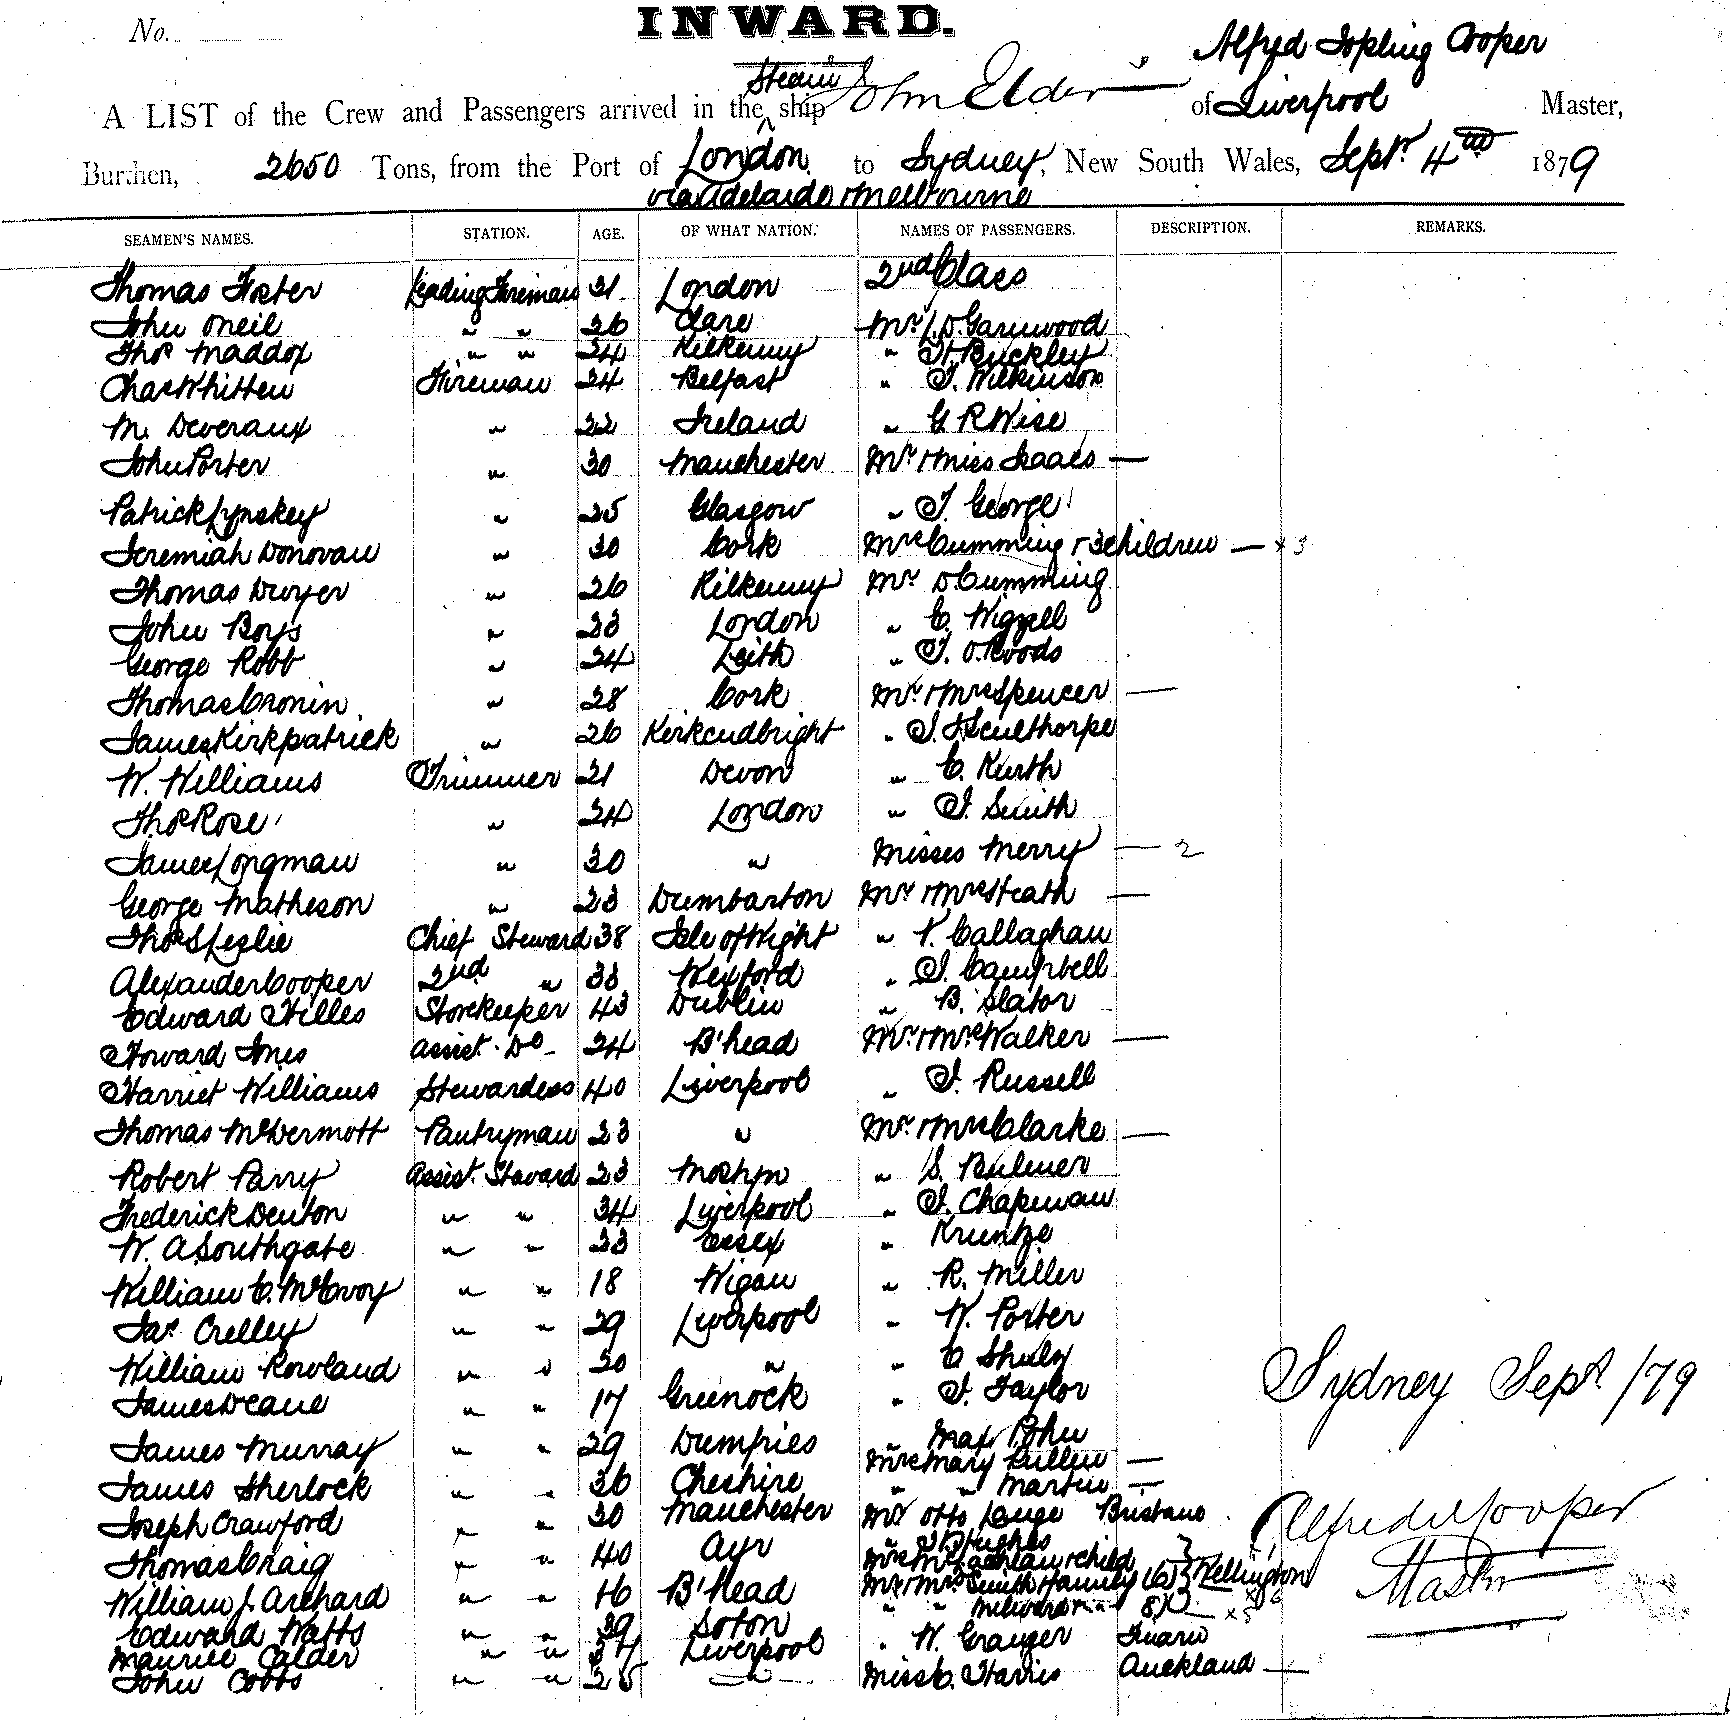 No.
INWARD.
Alfred Jopling Cooper
A LIST of the Crew and Passengers arrived in the Steam ship John Elder of Liverpool Master,
Burthen, 2650 Tons, from the Port of London to Sydney, New South Wales, Sept. 4th 1879
via Adelaide & Melbourne
SEAMEN'S NAMES. STATION. AGE. OF WHAT NATION. NAMES OF PASSENGERS. DESCRIPTION. REMARKS.
Thomas Foster Leading Fireman 31 London 2nd Class
John Oneil " " 26 Clare Mr L.D. Garnwood
Thos Maddox " " 24 Kilkenny " H. Buckley
Chas Whitten Fireman 24 Belfast " J. Wilkinson
M. Deveraux " 22 Ireland " G R Wise
John Porter " 30 Manchester Mr & Miss Isaacs —
Patrick Lynskey " 25 Glasgow " J. George
Jeremiah Donovan " 30 Cork Mrs Cumming & 3 children — x 3
Thomas Dwyer " 26 Kilkenny Mr D Cumming
John Boys " 33 London " C. Wigzell
George Robb " 24 Leith " J. O. Woods
Thomas Cronin " 28 Cork Mr & Mrs Spencer —
James Kirkpatrick " 26 Kirkcudbright " J. F. Sculthorpe
W. Williams Trimmer 21 Devon " C. Kurth
Thos Rose " 24 London " J. Smith
James Longman " 30 " Misses Merry — 2
George Matheson " 23 Dumbarton Mr & Mrs Heath —
Thos S Leslie Chief Steward 38 Isle of Wight " T. Callaghan
Alexander Cooper 2nd " 33 Wexford " J. Campbell
Edward Hilles Storekeeper 43 Dublin " B. Slator
Howard Jones Assist. Do 24 B'head Mr & Mrs Walker —
Harriet Williams Stewardess 40 Liverpool " J. Russell
Thomas McDermott Pantryman 23 " Mr & Mrs Clarke —
Robert Parry Assist. Steward 23 Mostyn " S. Bulmer
Frederick Denton " " 34 Liverpool " J. Chapman
W. A Southgate " " 33 Essex " Kruntze
William C. McEvoy " " 18 Wigan " R. Miller
Jas Crelley " " 29 Liverpool " W. Porter
William Rowland " " 30 " " C
James Deane " " 17 Greenock " J. Taylor
Sydney Sept. /79
James Murray " " 29 Dumfries " Max
Mrs Mary —
James Sherlock " " 36 Cheshire " " Martin —
Joseph Crawford " " 30 Manchester Mr Otto Lange Brisbane
" Hughes
Alfred J Cooper
Thomas Craig " " 40 Ayr Mrs McLachlan & child
Master
William J. Archard " " 16 B'head Mr & Mrs Smith & family (6) Wellington
" " Milward 8
Edward Watts " " 39 Soton " W. Granger Timaru
Maurice Calder " " 37 Liverpool
John Cobbs " " 25 " Miss C. Harris Auckland —